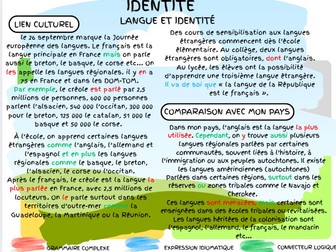 IDENTITÉ
LANGUE ET IDENTITÉ
LIEN CULTUREL
Le 26 septembre marque la Journée
européenne des langues. Le français est la
langue principale en France mais on parle
aussi le breton, le basque, le corse etc... On
les appelle les langues régionales. Il y en a
75 en France et dans les DOM-TOM.
Par exemple, le créole est parlé par 2,5
millions de personnes, 600 000 personnes
parlent l'alsacien, 500 000 l'occitan, 200 000
pour le breton, 125 000 le catalan, 51 000
le basque et 50 000 le corse.
À l'école, on apprend certaines langues
étrangères comme l'anglais, l'allemand et
l'espagnol et en plus les langues
régionales comme le basque, le breton,
l'alsacien, le corse ou l'occitan.
Après le français, le créole est la langue la
plus parlée en France, avec 2,5 millions de
locuteurs. On le parle surtout dans les
territoires d'outre-mer comme la
Guadeloupe, la Martinique ou la Réunion.
Des cours de sensibilisation aux langues
étrangères commencent dès l'école
élémentaire. Au collège, deux langues
étrangères sont obligatoires, dont l'anglais.
Au lycée, les élèves ont la possibilité
d'apprendre une troisième langue étrangère.
Il y a un dicton : « la langue de la République
est le français ».
COMPARAISON AVEC MON PAYS
Dans mon pays, l'anglais est la langue la plus
utilisée. Cependant, on y trouve aussi plusieurs
langues régionales parlées par certaines
communautés, souvent liées à l'histoire, à
l'immigration ou aux peuples autochtones. Il existe
les langues amérindiennes (autochtones)
Parlées dans certaines régions, surtout dans
les réserves ou zones tribales comme le Navajo et
Cherokee.
Ces langues sont menacées, mais certaines sont
enseignées dans des écoles tribales ou revitalisées.
Les langues héritées de la colonisation sont
l'espagnol, l'allemand, l'italien, etc...
GRAMMAIRE COMPLEXE
EXPRESSION IDIOMATIQUE
CONNECTEUR LOGI